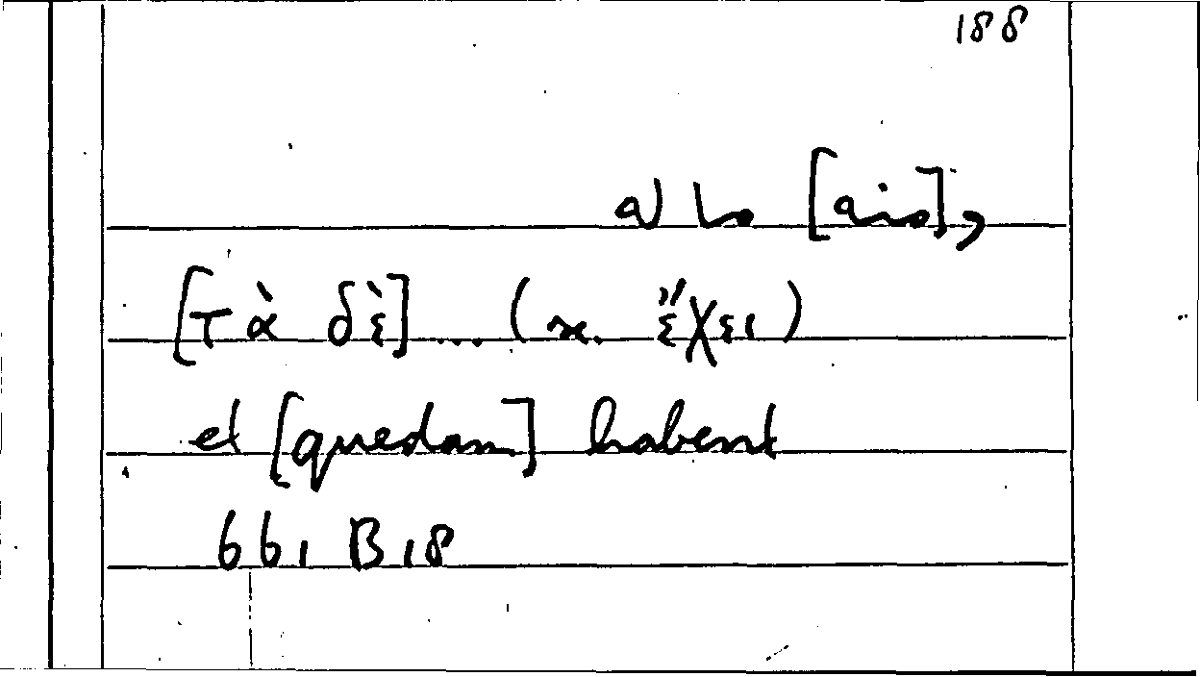 188
[ais],
[τὰ δὲ] ... (x. ἔχει)
et [quedam] habent
661 B 18